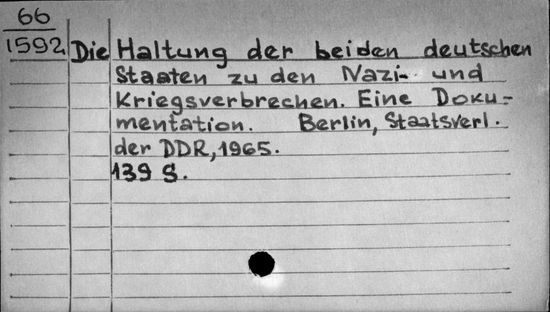 66
1592
Die Haltung der beiden deutschen
Staaten zu den Nazi- und
Kriegsverbrechen. Eine Doku-
mentation. Berlin, Staatsverl.
der DDR, 1965.
139 S.